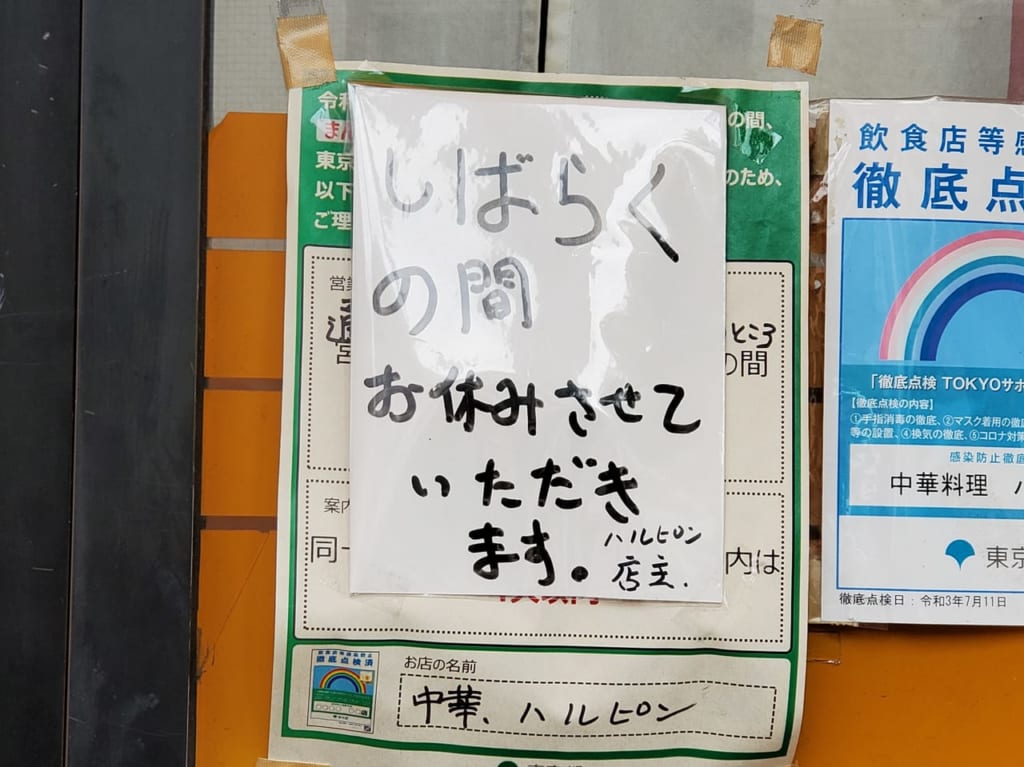 しばらく
の間
お休みさせて
いただき
ます。
ハルピン
店主.
の間、
東京
のため、
以下
営業
ところ
の間
案内
同一
内は
お店の名前
中華、ハルピン
徹底点検済
飲食店等感
徹底点
「徹底点検 TOKYOサポ
【徹底点検の内容】
①手指消毒の徹底、②マスク着用の徹底
等の設置、④換気の徹底、⑤コロナ対策
感染防止徹底
中華料理 ハ
東京
徹底点検日：令和3年7月11日